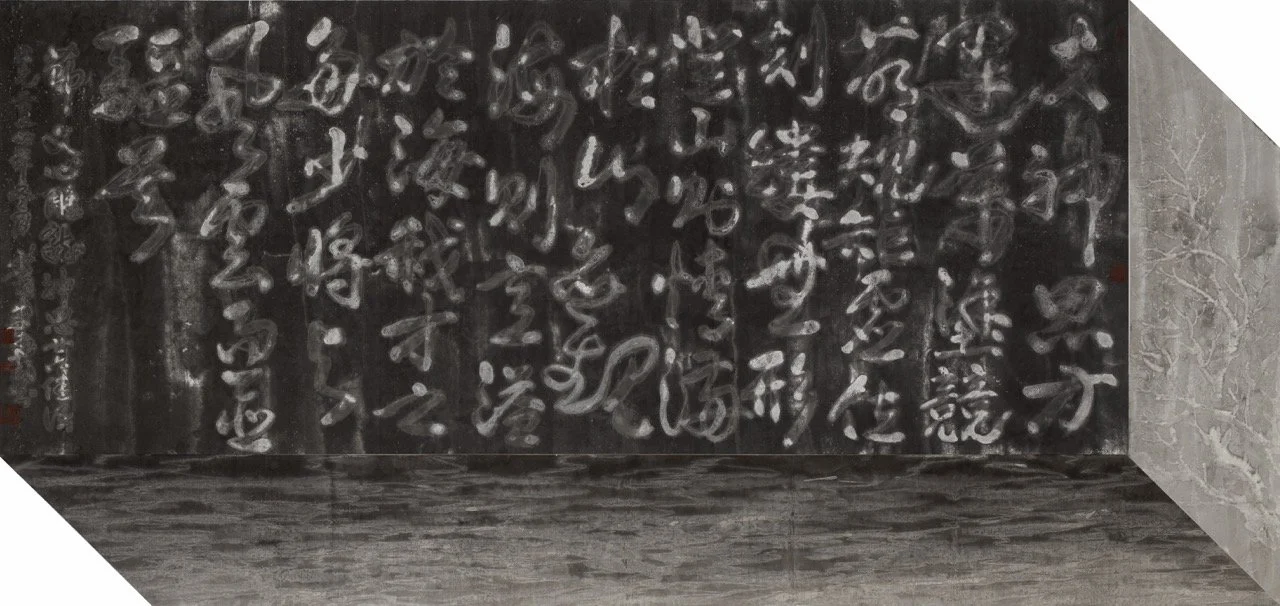 夫神思方
運萬塗競
萌規矩虛位
刻鏤無形
登山則情滿
於山觀
海則意溢
於海我才之
多少將與
風雲而並
驅矣
節文心雕龍